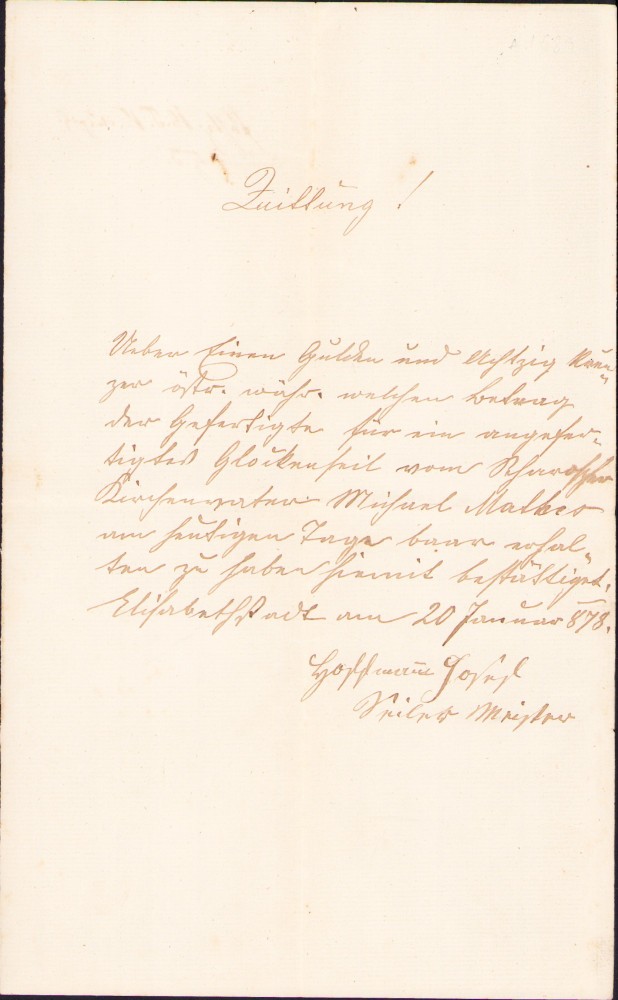 Quittung!
Ueber Einen Gulden und Achtzig Kreu=
zer östr. währ. welchen Betrag
der Gefertigte für ein angefer=
tigtes Glockenseil vom Scharoscher
Kirchenvater Michael Mathes
am heutigen Tage baar erhal=
ten zu haben hiemit bestättiget.
Elisabethstadt am 20 Januar 878.
Hoffmann Josef
Seiler Meister